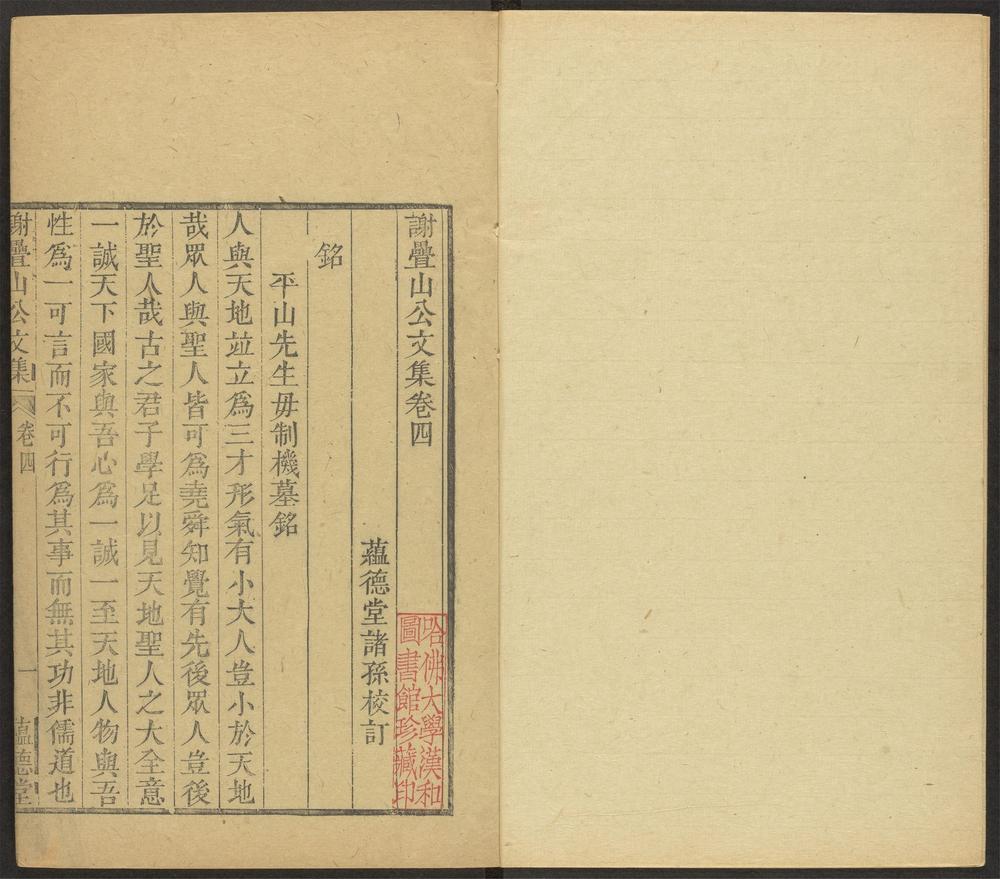 謝疊山公文集卷四
蘊德堂諸孫校訂
銘
平山先生毋制機墓銘
人與天地竝立爲三才形氣有小大人豈小於天地
哉眾人與聖人皆可爲堯舜知覺有先後眾人豈後
於聖人哉古之君子學足以見天地聖人之大全意
一誠天下國家與吾心爲一誠一至天地人物與吾
性爲一可言而不可行爲其事而無其功非儒道也
謝疊山公文集 卷四 一 蘊德堂
哈佛大學漢和
圖書館珍藏印